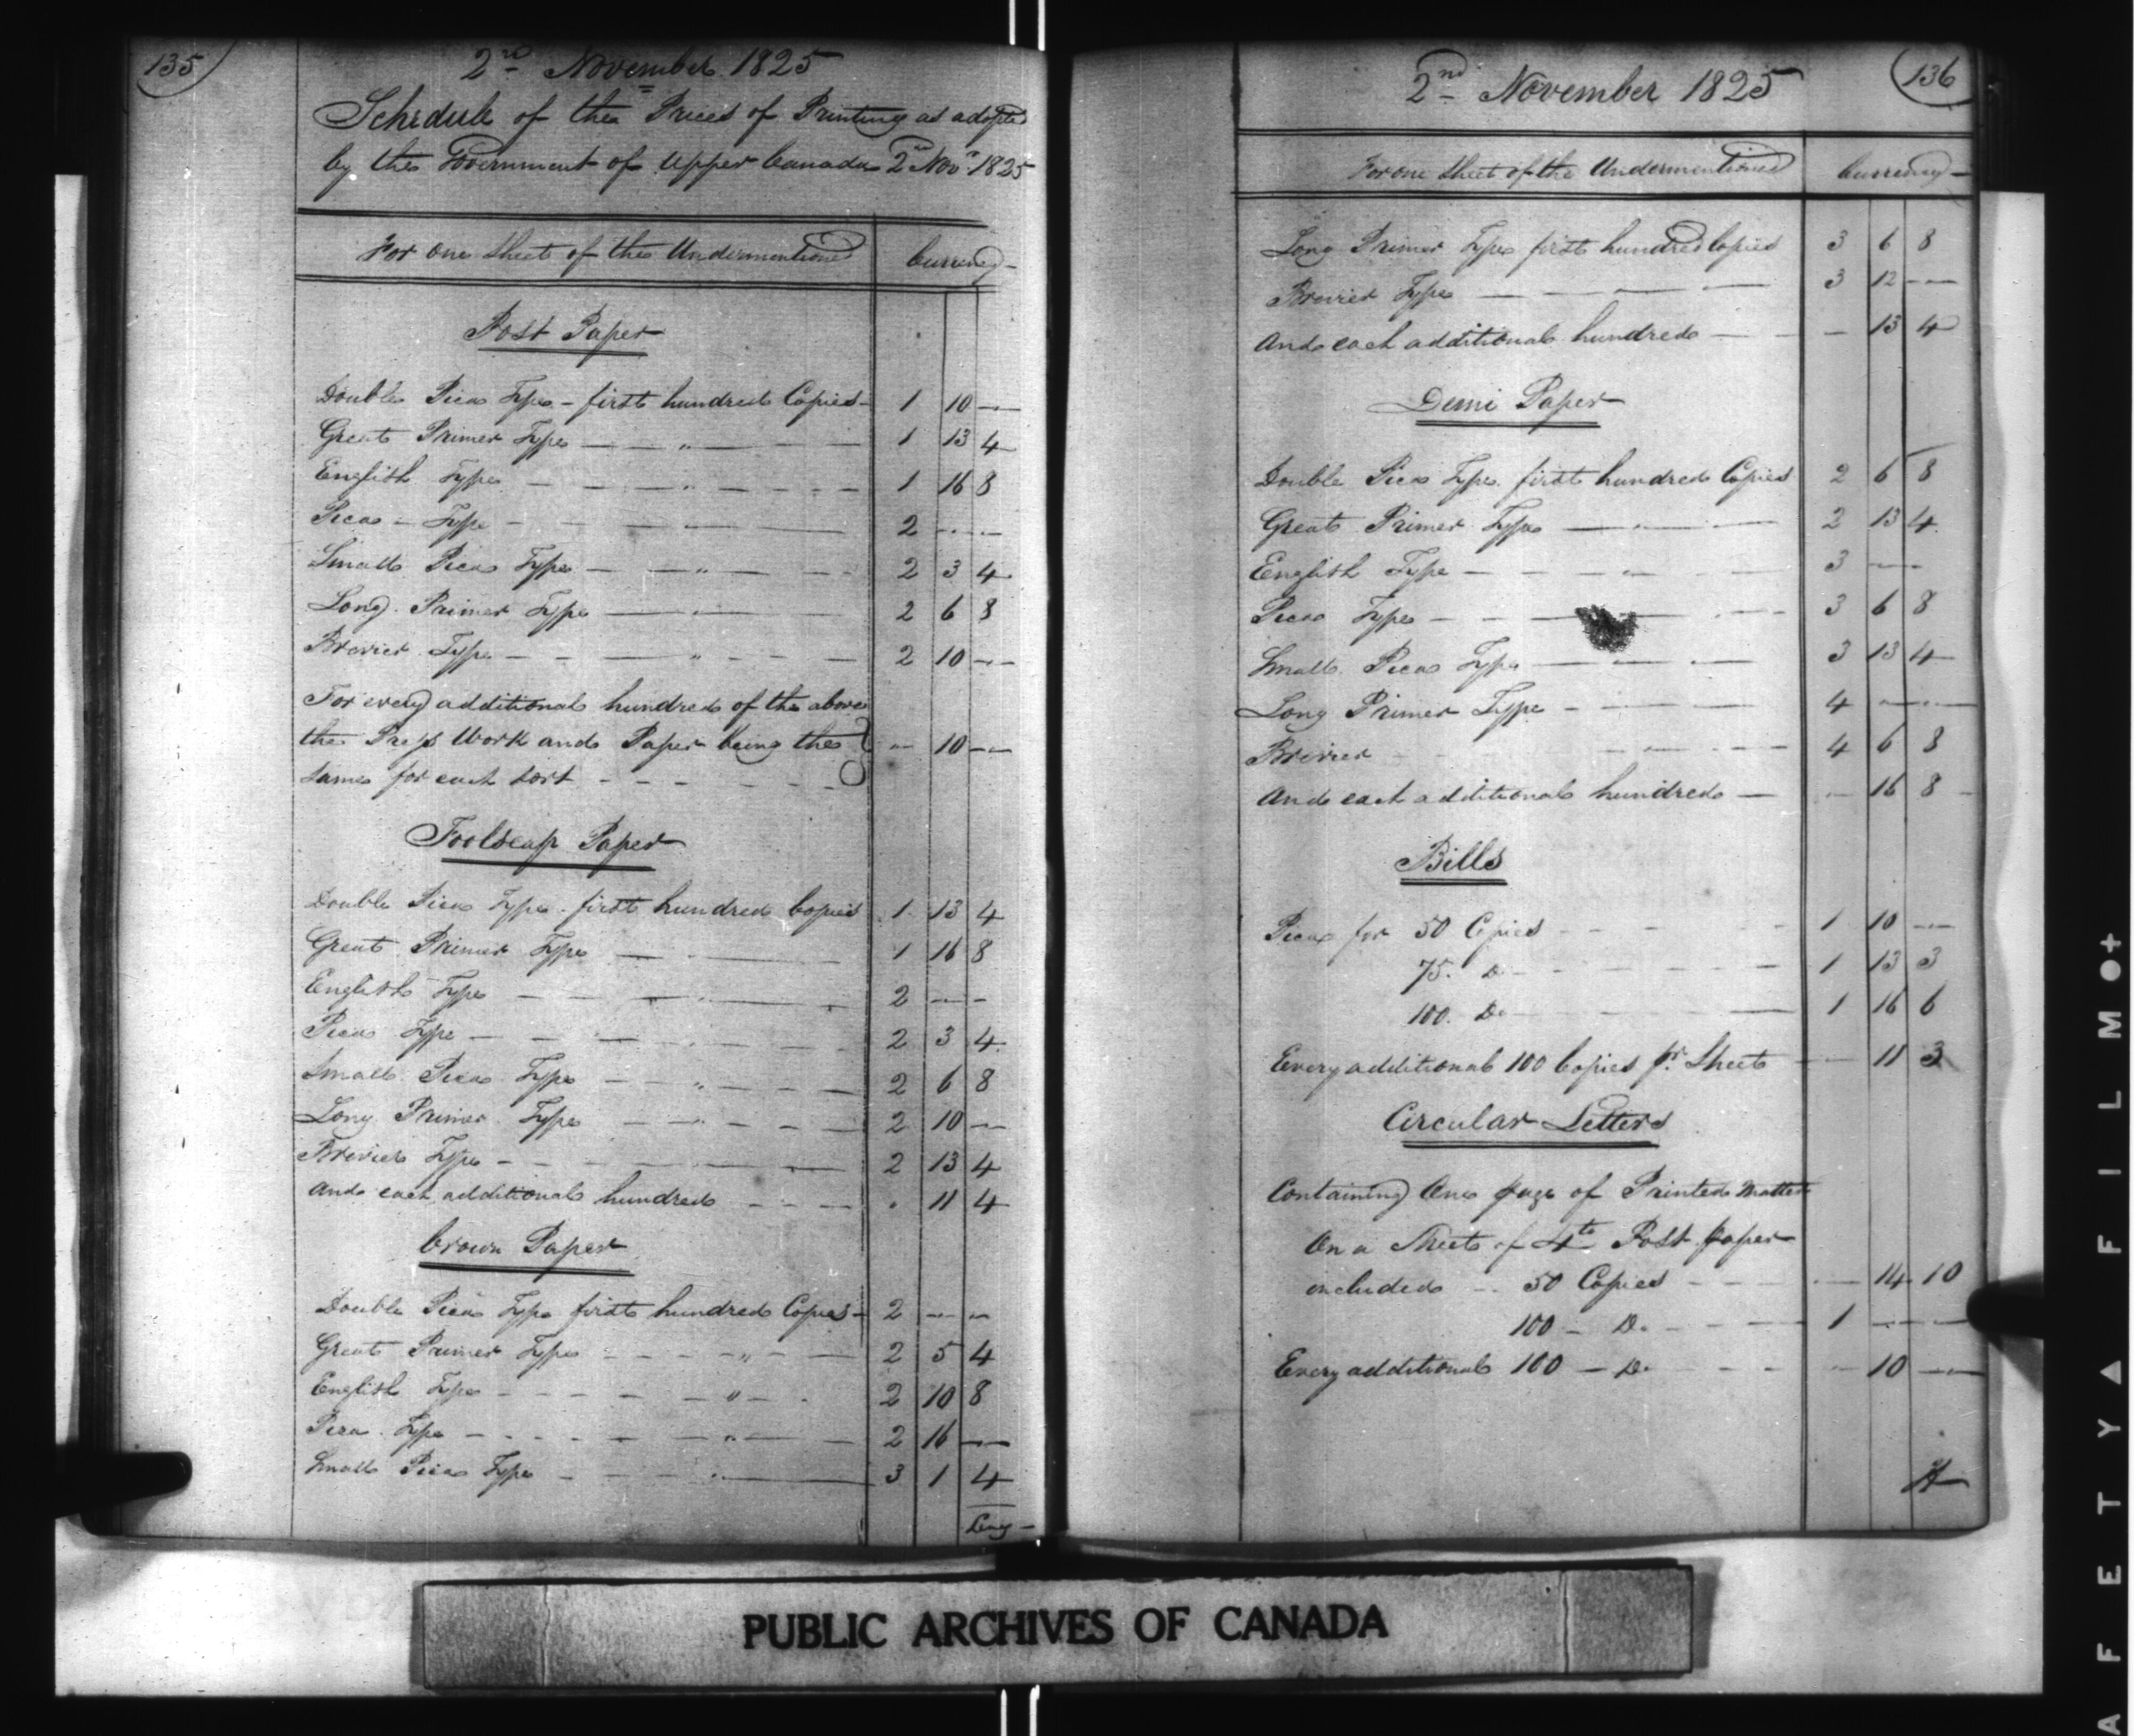 135
2nd November 1825
Schedule of the Prices of Printing as adopted
by the Government of Upper Canada 2nd Novr 1825
For one Sheet of the Undermentioned Currency
Post Paper
Double Pica Type - first hundred Copies - 1 10 —
Great Primer Type — „ — 1 13 4
English Type — „ — 1 16 8
Pica - Type — „ — 2 — —
Small Pica Type — „ — 2 3 4
Long Primer Type — „ — 2 6 8
Brevier Type — „ — 2 10 —
For every additional hundred of the above
the Press Work and Paper being the — 10 —
same for each sort - - -
Foolscap Paper
Double Pica Type first hundred Copies 1 13 4
Great Primer Type — 1 16 8
English Type — „ — 2 — —
Pica Type — 2 3 4
Small Pica Type — „ — 2 6 8
Long Primer Type — „ — 2 10 —
Brevier Type — 2 13 4
And each additional hundred - - - . 11 4
Crown Paper
Double Pica Type first hundred Copies - 2 — —
Great Primer Type - - „ — 2 5 4
English Type - - - „ — 2 10 8
Pica Type - - - „ — 2 16 —
Small Pica Type — „ — 3 1 4
Long -
136
2nd November 1825
For one Sheet of the Undermentioned Currency -
Long Primer Type first hundred Copies 3 6 8
Brevier Type — 3 12 —
And each additional hundred — — 13 4
Demi Paper
Double Pica Type first hundred Copies 2 6 8
Great Primer Type — 2 13 4
English Type — „ — 3 — —
Pica Type — 3 6 8
Small Pica Type — 3 13 4
Long Primer Type - — 4 — —
Brevier — 4 6 8
And each additional hundred — — 16 8
Bills
Pica for 50 Copies - - - 1 10 —
75. Do - - - 1 13 3
100. Do — 1 16 6
Every additional 100 Copies pr. Sheet — 11 3
Circular Letters
Containing One page of Printed Matter
On a Sheet of 4to Post paper
included - 50 Copies - - — 14 10
100 - Do. - - 1 — —
Every additional 100 — Do. - - — 10 —
PUBLIC ARCHIVES OF CANADA
AFETY▲FILM●+